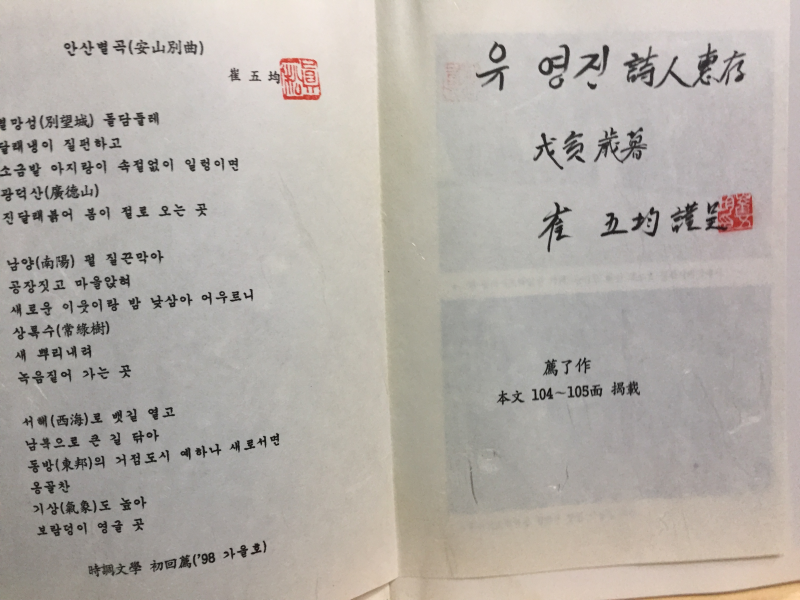 안산별곡(安山別曲)
崔五均
별망성(別望城) 돌담들레
달래냉이 질펀하고
소금밭 아지랑이 속절없이 일렁이면
광덕산(廣德山)
진달래붉어 봄이 절로 오는 곳
남양(南陽) 펄 질끈막아
공장짓고 마을앉혀
새로운 이웃이랑 밤 낮삼아 어우르니
상록수(常綠樹)
새 뿌리내려
녹음짙어 가는 곳
서해(西海)로 뱃길 열고
남북으로 큰 길 닦아
동방(東邦)의 거점도시 예하나 새로서면
옹골찬
기상(氣象)도 높아
보람덩이 영글 곳
時調文學 初回薦('98 가을호)
유 영진 詩人惠存
戊亥 歲暮
崔 五均 謹呈
薦了作
本文 104~105面 揭載